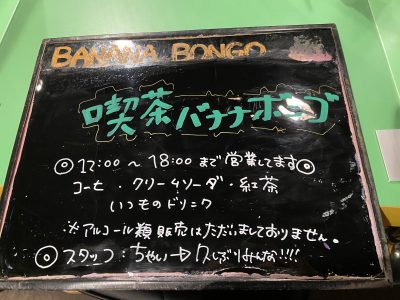 BANANA BONGO
喫茶バナナボンゴ
◎12:00〜18:00まで営業してます◎
コーヒ・クリームソーダ・紅茶
いつものドリンク
※アルコール類販売はただいましておりません。
◎スタッフ:ちゃい→久しぶりみんな!!!!